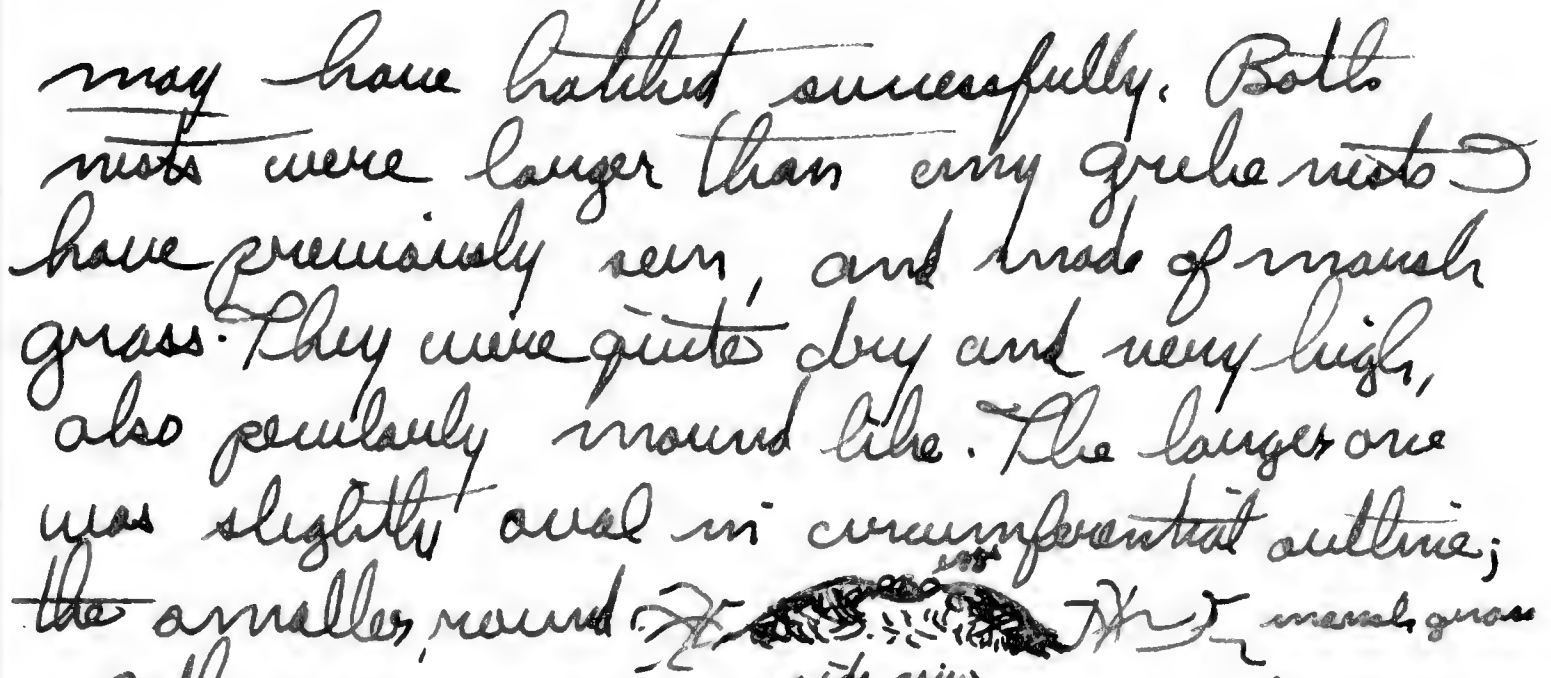 may have hatched successfully. Both
nests were larger than any grebe nests I
have previously seen, and made of marsh
grass. They were quite dry and very high,
also peculiarly mound like. The larger one
was slightly oval in circumferential outline;
eggs
the smaller, round. marsh grass
side view